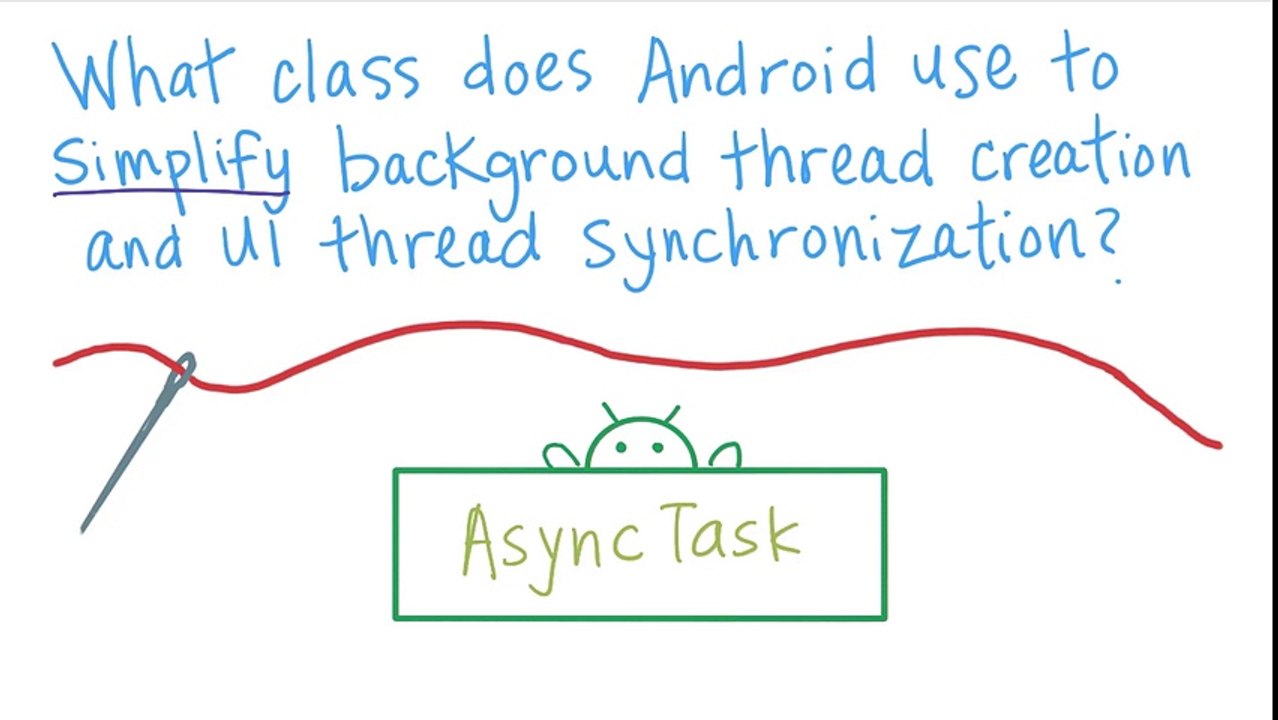 What class does Android use to
simplify background thread creation
and UI thread synchronization?
AsyncTask